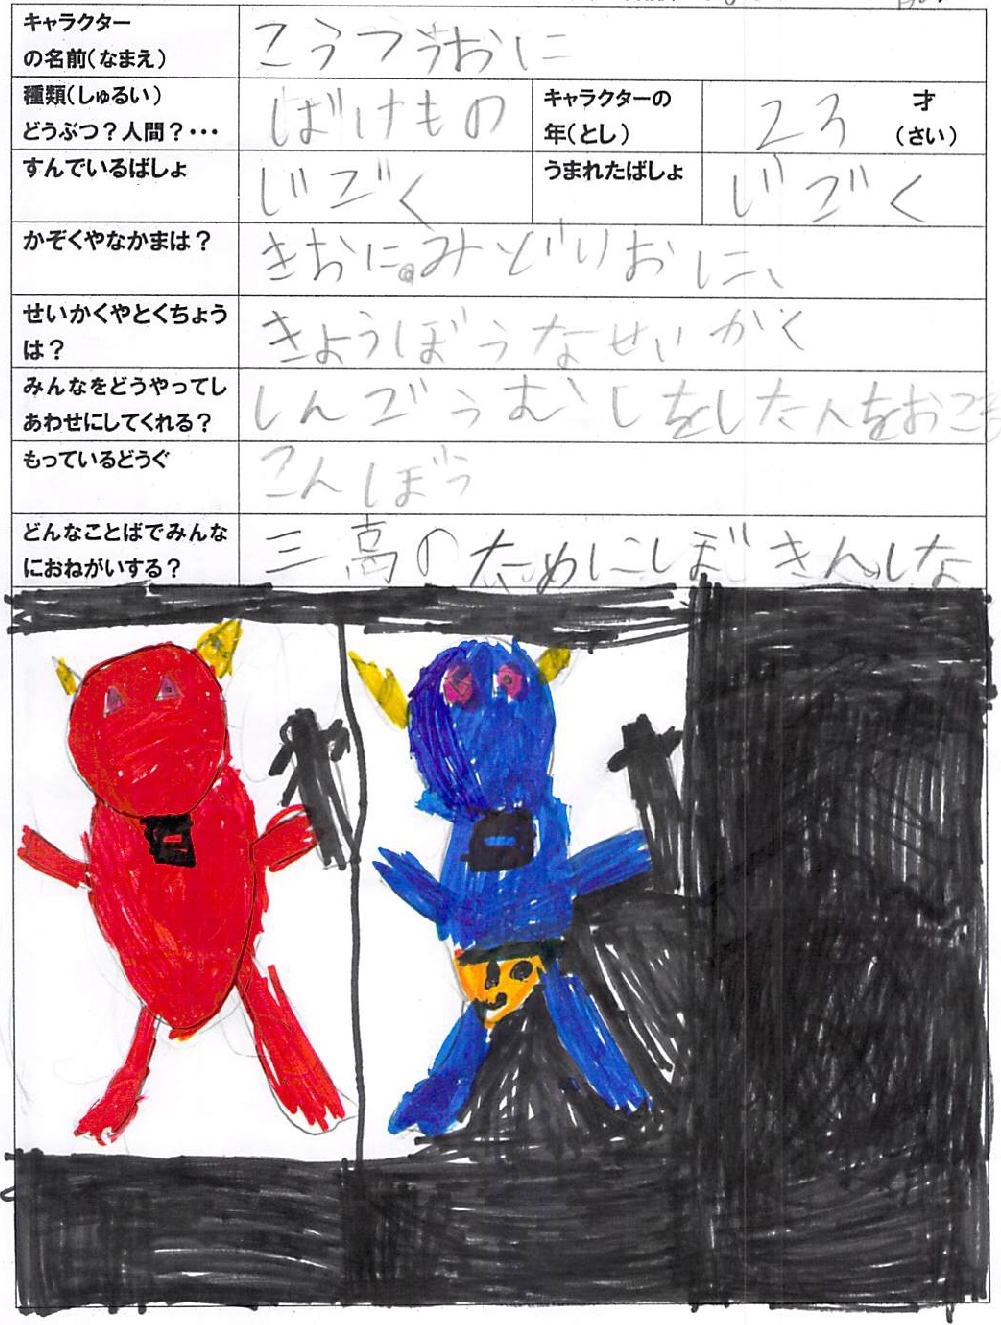 キャラクター
の名前(なまえ)
こうつうおに
種類(しゅるい)
どうぶつ?人間?・・・
ばけもの
キャラクターの
年(とし)
23
才
(さい)
すんでいるばしょ
じごく
うまれたばしょ
じごく
かぞくやなかまは?
きおに。みどりおに、
せいかくやとくちょう
は?
きょうぼうなせいかく
みんなをどうやってし
あわせにしてくれる?
しんごうむしをした人をおこる
もっているどうぐ
こんぼう
どんなことばでみんな
におねがいする?
三高のためにしぼきんしな